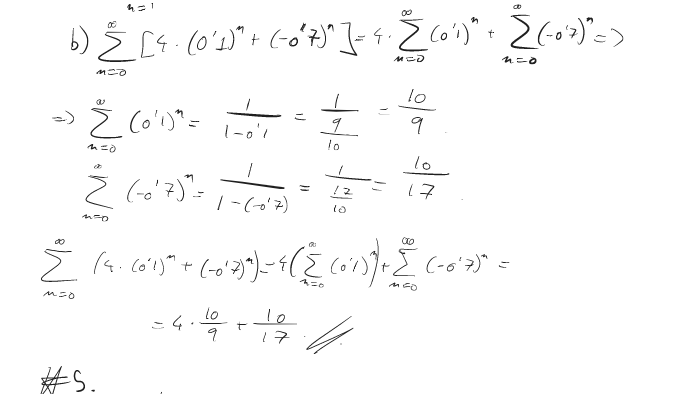 n=1
b) ∞∑n=0 [4·(0'1)^n + (-0'7)^n] = 4·∞∑n=0 (0'1)^n + ∞∑n=0 (-0'7)^n =>
=> ∞∑n=0 (0'1)^n = 1/(1-0'1) = 1/(9/10) = 10/9
∞∑n=0 (-0'7)^n = 1/(1-(-0'7)) = 1/(17/10) = 10/17
∞∑n=0 (4·(0'1)^n + (-0'7)^n) = 4(∞∑n=0 (0'1)^n) + ∞∑n=0 (-0'7)^n =
= 4·10/9 + 10/17.
#5.